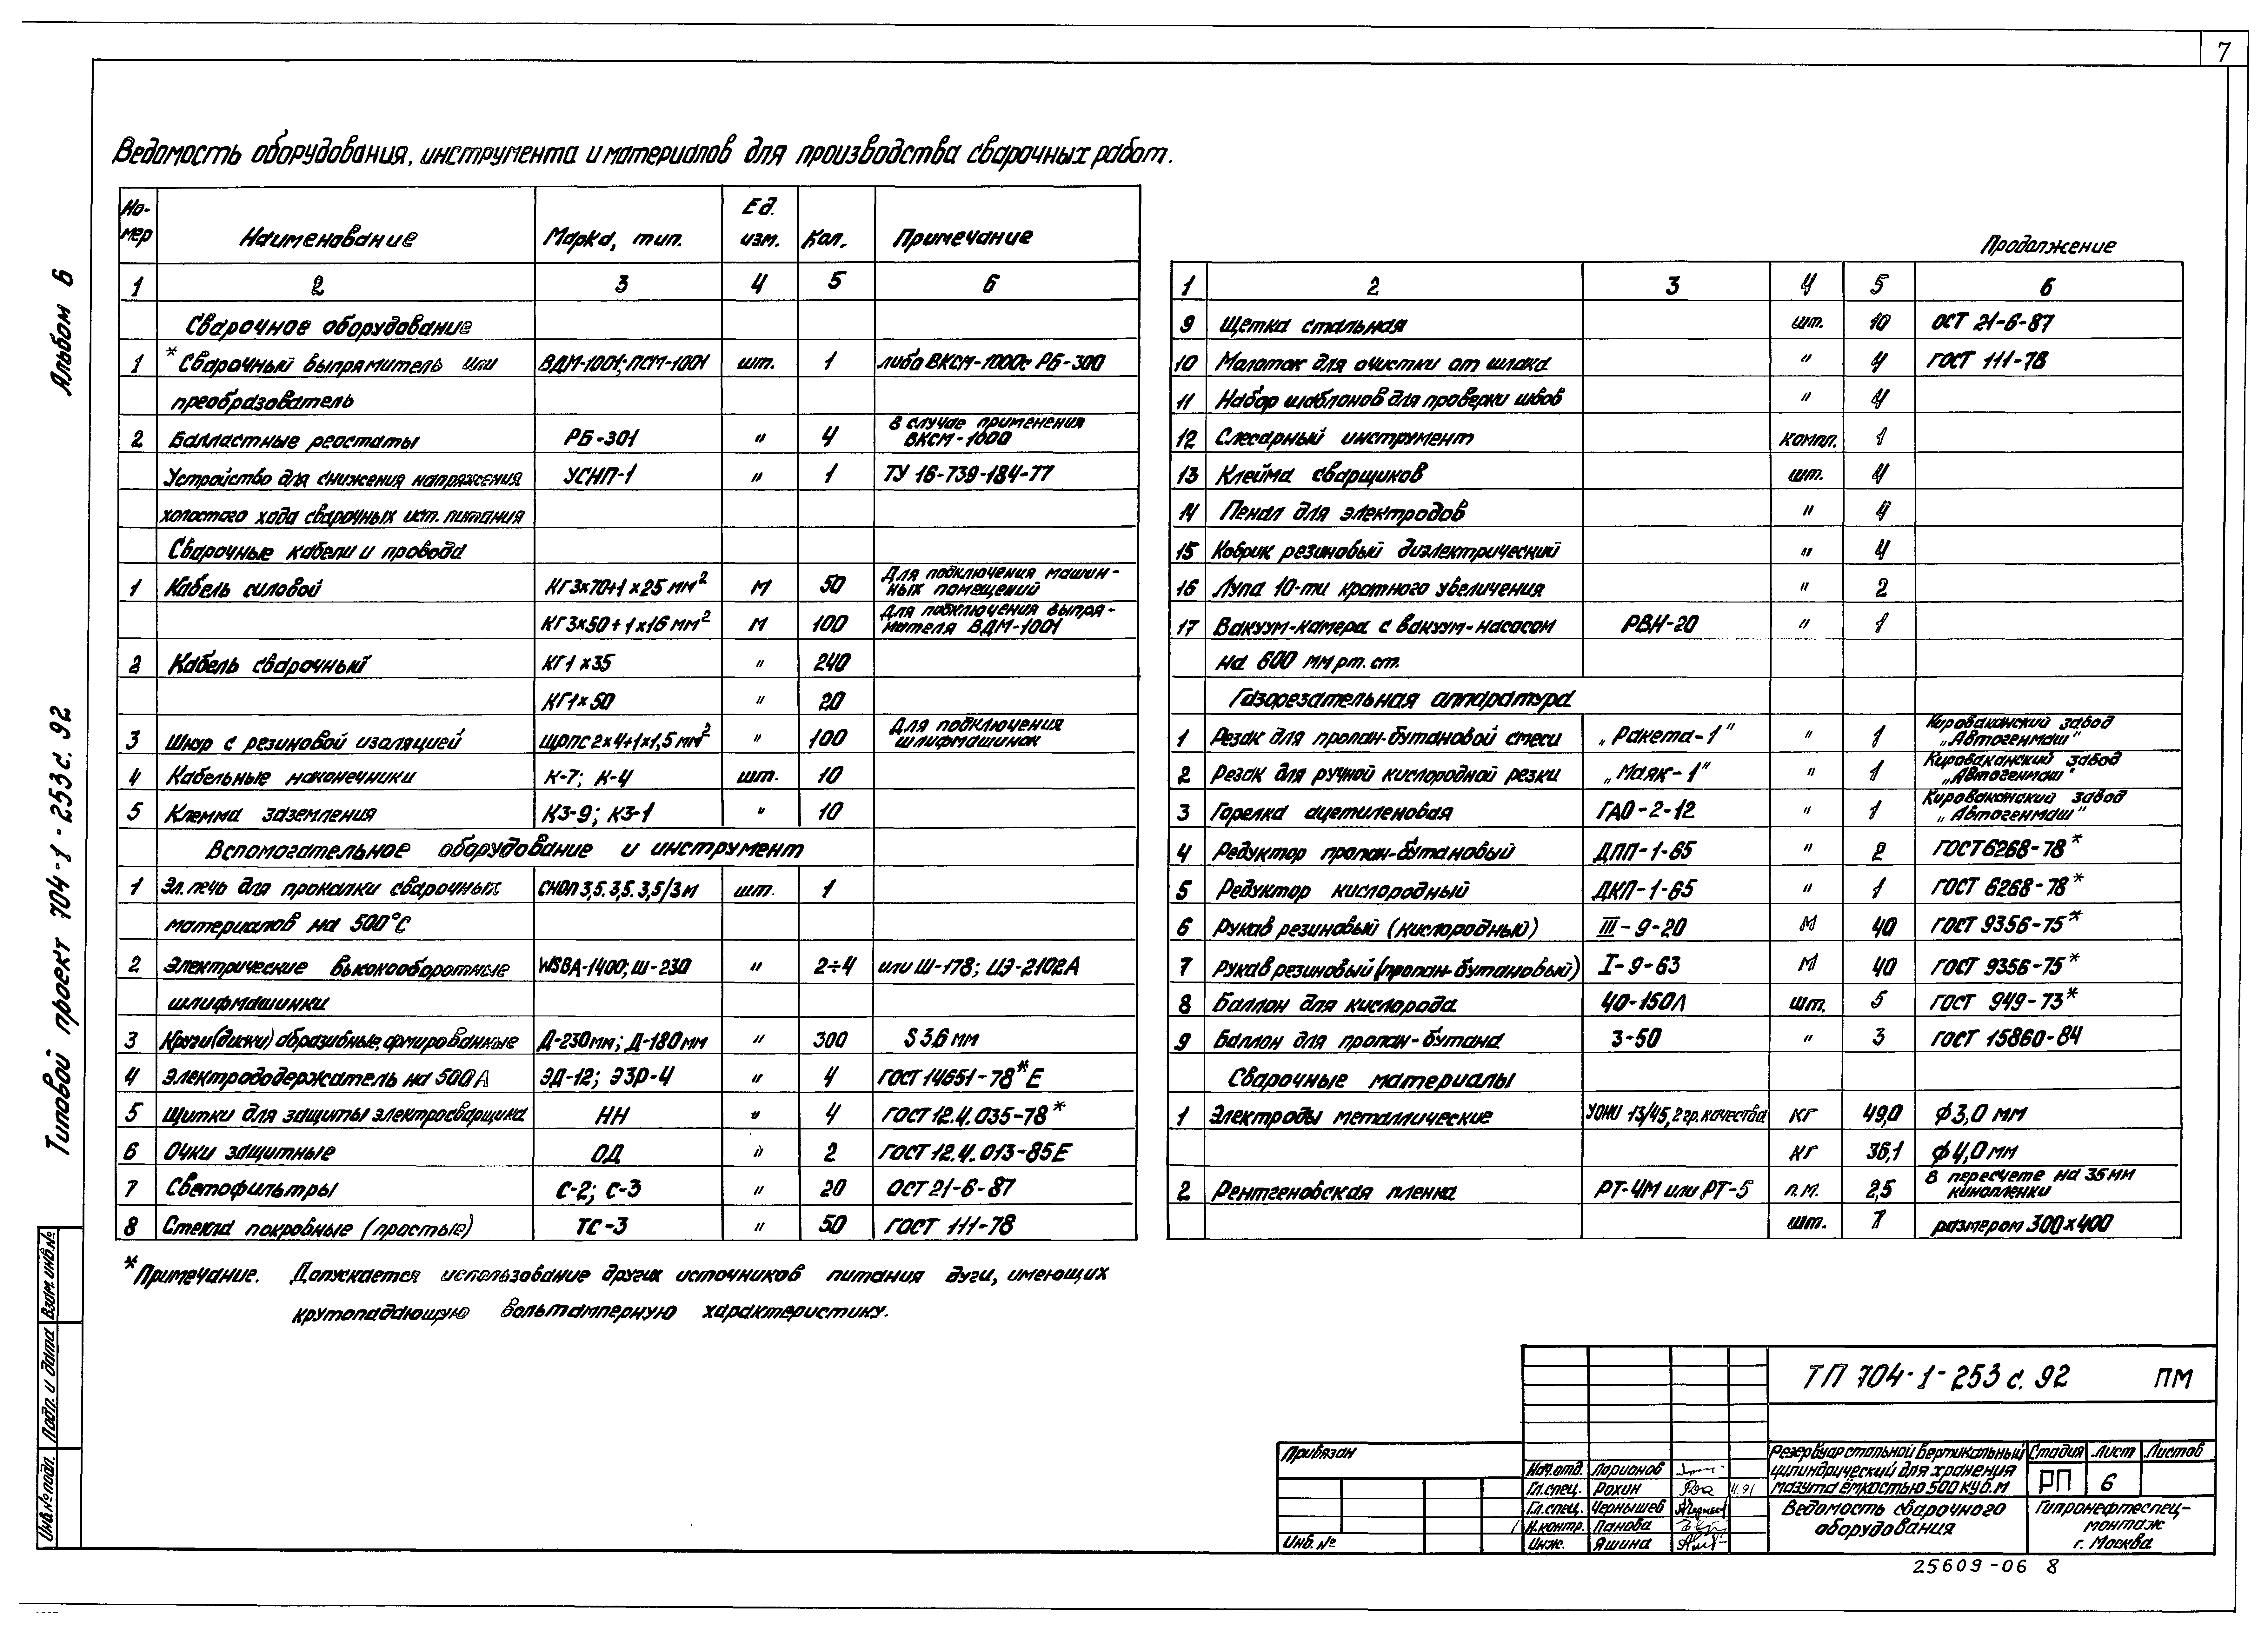 7
Ведомость оборудования, инструмента и материалов для производства сварочных работ.
Но-мер Наименование Марка, тип. Ед. изм. Кол. Примечание
1 2 3 4 5 6
Сварочное оборудование
1 *Сварочный выпрямитель или ВДМ-1001; ПСМ-1001 шт. 1 либо ВКСМ-1000с РБ-300
преобразователь
2 Балластные реостаты РБ-301 " 4 В случае применения ВКСМ-1000
Устройство для снижения напряжения УСНП-1 " 1 ТУ 16-739-184-77
холостого хода сварочных ист. питания
Сварочные кабели и провода
1 Кабель силовой КГ3х70+1х25 мм² м 50 Для подключения машин-ных помещений
КГ3х50+1х16 мм² м 100 Для подключения выпря-мителя ВДМ-1001
2 Кабель сварочный КГ1х35 " 240
КГ1х50 " 20
3 Шнур с резиновой изоляцией ШРПС 2х4+1х1,5 мм² " 100 Для подключения шлифмашинок
4 Кабельные наконечники К-7; К-4 шт. 10
5 Клемма заземления КЗ-9; КЗ-1 " 10
Вспомогательное оборудование и инструмент
1 Эл. печь для прокалки сварочных СНОЛ 3,5.3,5.3,5/3м шт. 1
материалов на 500°С
2 Электрические высокооборотные WSBA-1400; Ш-230 " 2÷4 или Ш-178; ЦЭ-2102А
шлифмашинки
3 Круги(диски) абразивные, армированные Д-230мм; Д-180мм " 300 S 3,6 мм
4 Электрододержатель на 500А ЭД-12; ЭЗР-4 " 4 ГОСТ 14651-78*Е
5 Щитки для защиты электросварщика НН " 4 ГОСТ 12.4.035-78*
6 Очки защитные ОД " 2 ГОСТ 12.4.013-85Е
7 Светофильтры С-2; С-3 " 20 ОСТ 21-6-87
8 Стекла покровные (простые) ТС-3 " 50 ГОСТ 111-78
*Примечание. Допускается использование других источников питания дуги, имеющих
крутопадающую вольтамперную характеристику.
Продолжение
1 2 3 4 5 6
9 Щетка стальная шт. 10 ОСТ 21-6-87
10 Молоток для очистки от шлака " 4 ГОСТ 111-78
11 Набор шаблонов для проверки швов " 4
12 Слесарный инструмент компл. 1
13 Клейма сварщиков шт. 4
14 Пенал для электродов " 4
15 Коврик резиновый диэлектрический " 4
16 Лупа 10-ти кратного увеличения " 2
17 Вакуум-камера с вакуум-насосом РВН-20 " 1
на 600 мм рт. ст.
Газорезательная аппаратура
1 Резак для пропан-бутановой смеси „Ракета-1" " 1 Кироваканский завод „Автогенмаш"
2 Резак для ручной кислородной резки „Маяк-1" " 1 Кироваканский завод „Автогенмаш"
3 Горелка ацетиленовая ГАО-2-12 " 1 Кироваканский завод „Автогенмаш"
4 Редуктор пропан-бутановый ДПП-1-65 " 2 ГОСТ 6268-78*
5 Редуктор кислородный ДКП-1-65 " 1 ГОСТ 6268-78*
6 Рукав резиновый (кислородный) III-9-20 м 40 ГОСТ 9356-75*
7 Рукав резиновый (пропан-бутановый) I-9-63 м 40 ГОСТ 9356-75*
8 Баллон для кислорода 40-150Л шт. 5 ГОСТ 949-73*
9 Баллон для пропан-бутана 3-50 " 3 ГОСТ 15860-84
Сварочные материалы
1 Электроды металлические УОНИ 13/45, 2 гр. качества кг 49,0 ф3,0 мм
кг 36,1 ф4,0 мм
2 Рентгеновская пленка РТ-4М или РТ-5 п.м. 2,5 В пересчете на 35 мм кинопленки
шт. 7 размером 300х400
Альбом 6
Типовой проект 704-1-253с.92
Взам. инв.№
Подп. и дата
Инв.№подл.
Привязан
Инв. №
Нач.отд. Ларионов
Гл.спец. Рохин 4.91
Гл.спец. Чернышев
Н.контр. Панова
Инж. Яшина
ТП 704-1-253с.92 ПМ
Резервуар стальной вертикальный
цилиндрический для хранения
мазута ёмкостью 500 куб.м
Стадия Лист Листов
РП 6
Ведомость сварочного
оборудования
Гипронефтеспец-
монтаж
г. Москва
25609-06 8